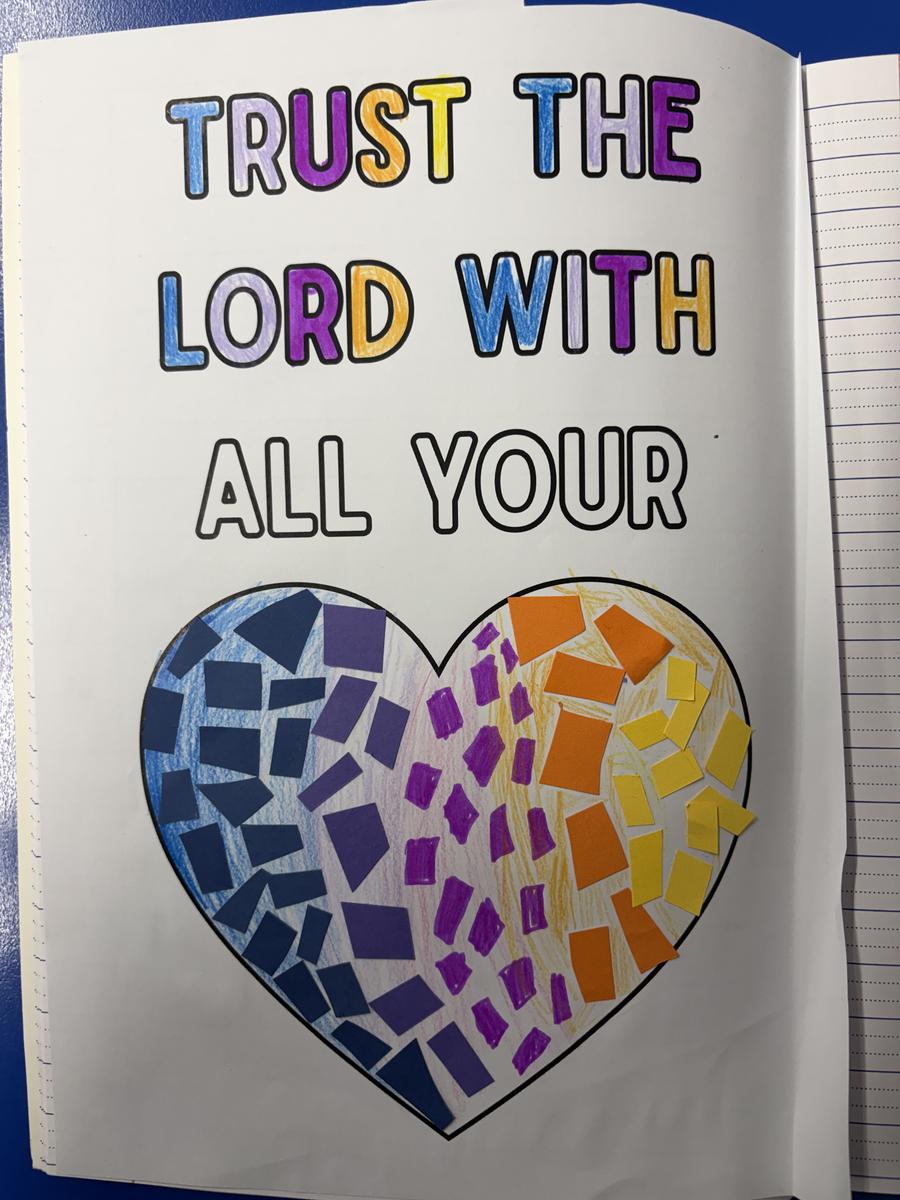 TRUST THE
LORD WITH
ALL YOUR